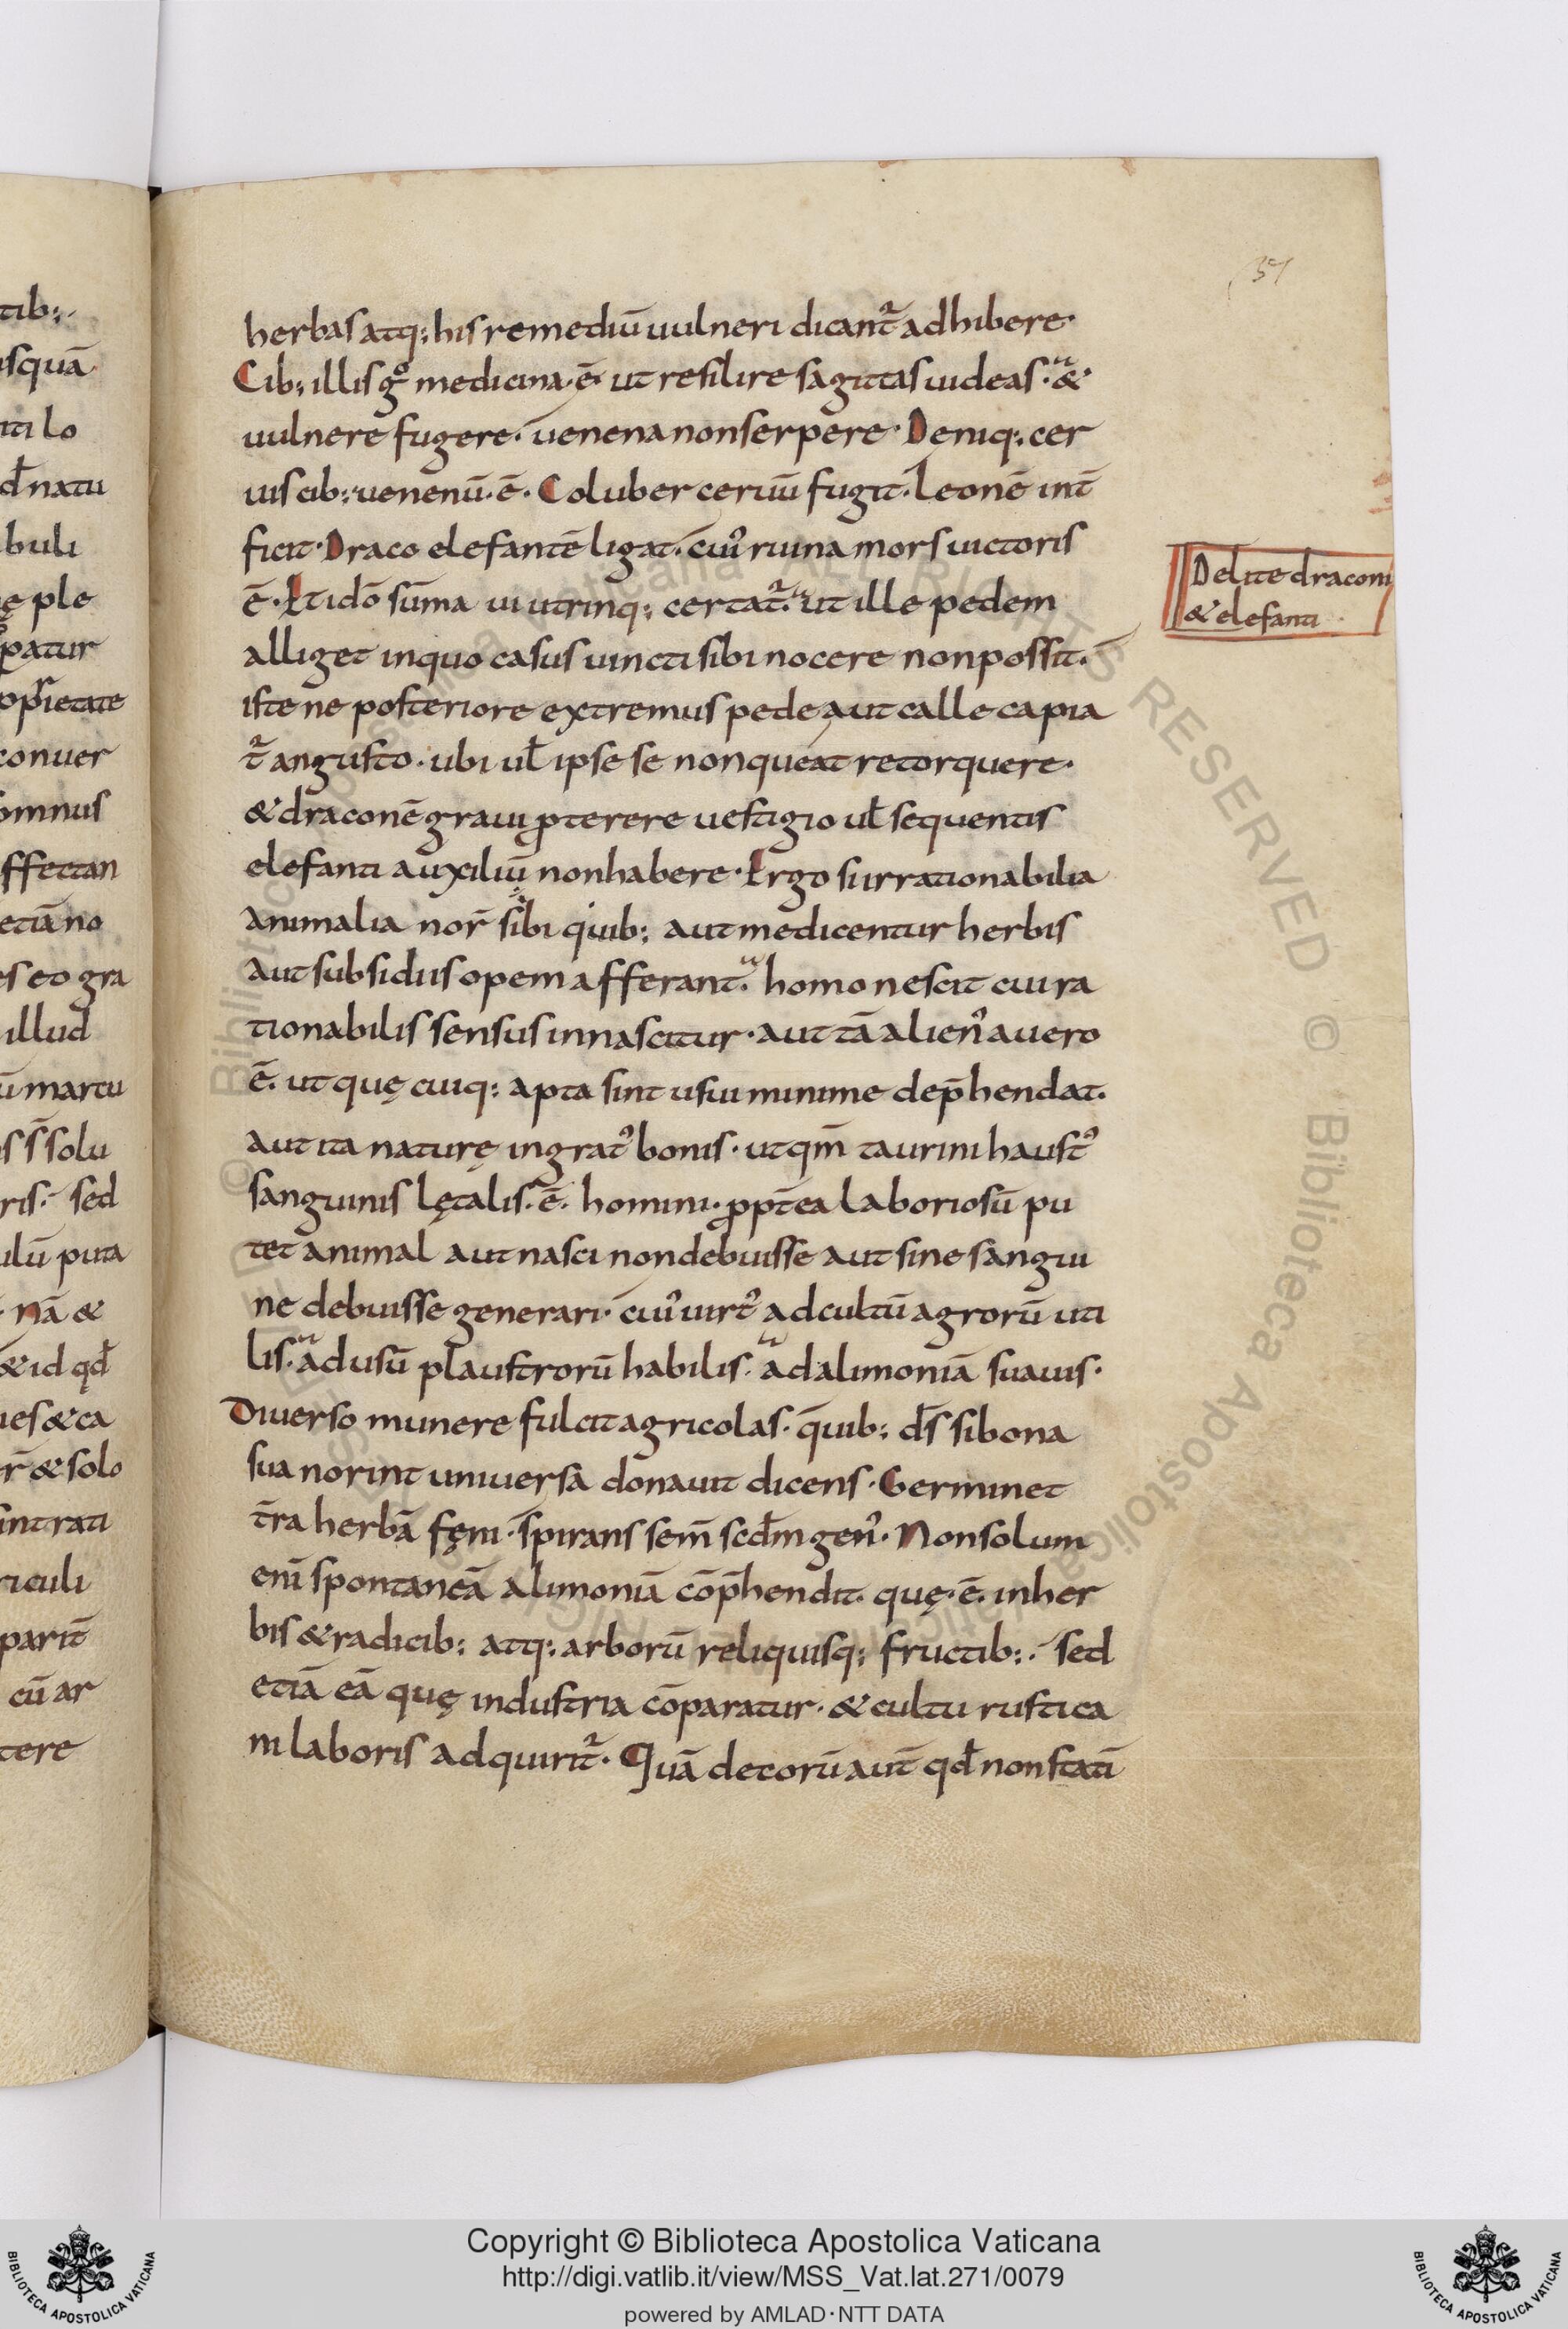 37
herbas atq; his remediū uulneri dicant̃ adhibere·
Cib; illis gͦ medicina·ē· ut resilire sagittas uideas· &·
uulnere fugere· uenena non serpere· Deniq; cer
uis cib; uenenū·ē· Coluber ceruū fugit· Leonē int̄
ficit· Draco elefantē ligat· cuiꝰ ruina mors uictoris
ē· Et idō sūma ui utrinq; certat̃· ut ille pedem
alliget in quo casus uincti sibi nocere non possit·
iste ne posteriore extremus pede aut calle capia
t̃ angusto· ubi ul̄ ipse se non queat retorquere·
& draconē graui ꝓterere uestigio ul̄ sequentis
elefanti auxiliū non habere· Ergo si irrationabilia
animalia nor̄ sibi quib; aut medicentur herbis
aut subsidiis opem afferant· homo nescit cui ra
tionabilis sensus innascitur· aut tā alienꝰ a uero
ē· ut quę cuiq; apta sint usui minime dep̄hendat·
aut ita naturę ingratꝰ bonis· ut qm̄ taurini haustꝰ
sanguinis lętalis·ē· homini· ꝓpt̄ea laboriosū pu
tet animal aut nasci non debuisse aut sine sangui
ne debuisse generari· cuiꝰ uirtꝰ ad cultū agrorū uti
lis· ad usū plaustrorū habilis· ad alimoniā suauis·
Diuerso munere fulcit agricolas· quib; d̄s si bona
sua norint uniuersa donauit dicens· Germinet
t̄ra herbā fęni· spirans sem̄ scd̄m genꝰ· Non solum
eni̅ spontaneā alimoniā cōp̄hendit· quę·ē· in her
bis & radicib; atq; arborū reliquisq; fructib;· sed
etiā eā quę industria cōparatur· & cultu rustica
ni laboris adquirit̃· Quā decorū aut̄ qd̄ non stati̅
De lite draconi
& elefanti
tib;·
squā
iti lo
d̄ natu
buli
ę ple
patur
opp̄rietate
conuer
omnus
ffectan
etiā no
es eto gra
illud
ū martu
s s̄ solu
ris· sed
ulū puta
· nā &
& id qd̄
ues & ca
r̄ & solo
intrati
riculi
parit̄
cū ar
tere
© Biblioteca Apostolica Vaticana ALL RIGHTS RESERVED © Biblioteca Apostolica Vaticana ALL RIGHTS RESERVED
Copyright © Biblioteca Apostolica Vaticana
http://digi.vatlib.it/view/MSS_Vat.lat.271/0079
powered by AMLAD·NTT DATA
BIBLIOTECA APOSTOLICA VATICANA
BIBLIOTECA APOSTOLICA VATICANA